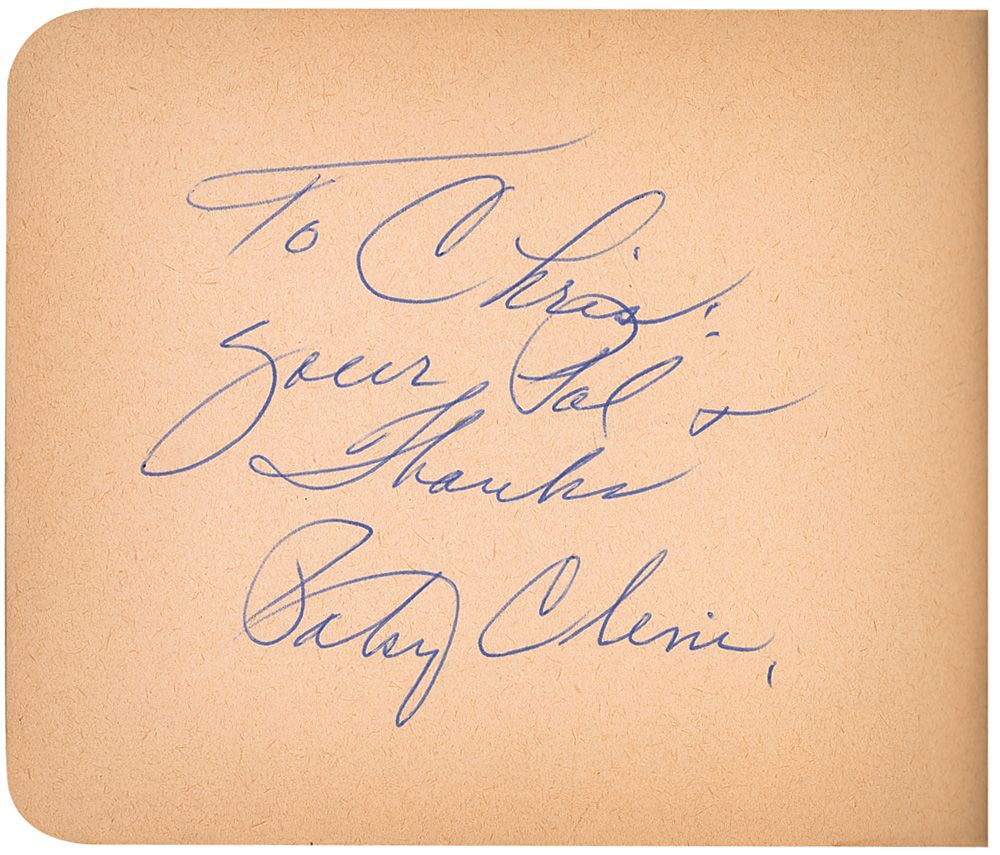 To Chris:
Your Pal +
Thanks
Patsy Cline,